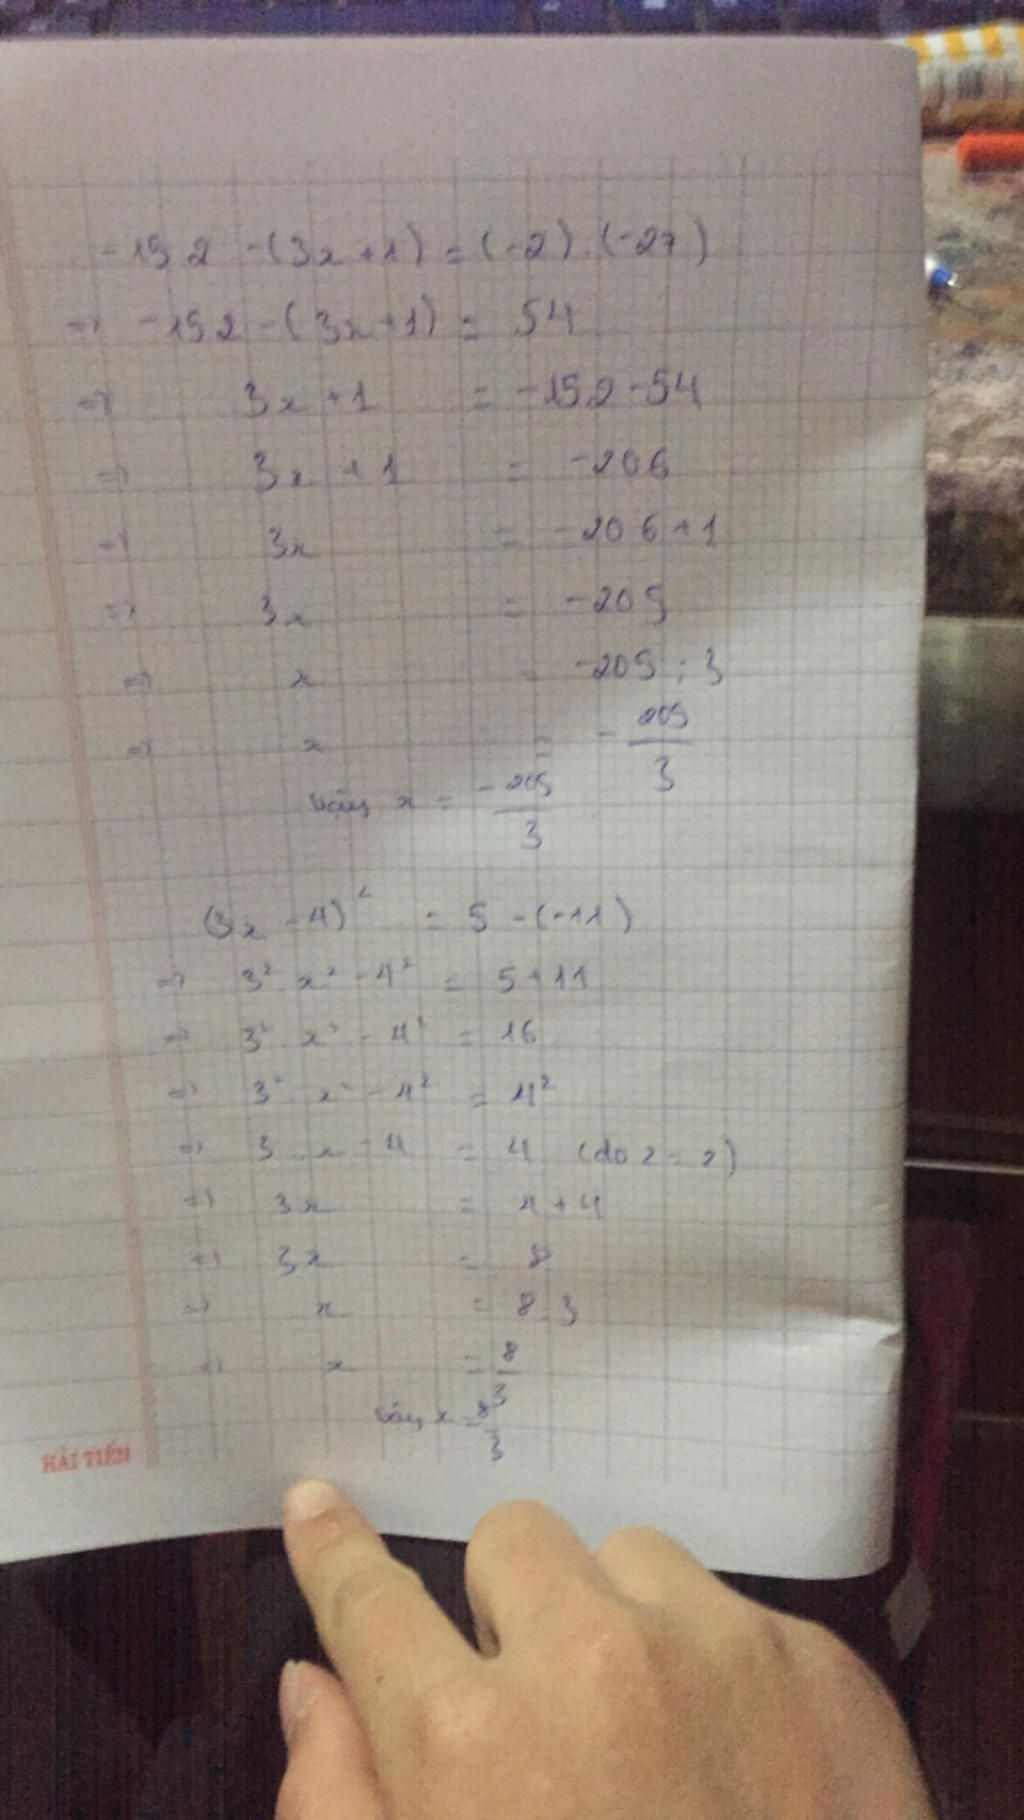 -152 -(3x+1) = (-2).(-27)
=> -152-(3x+1) = 54
=> 3x+1 = -152-54
=> 3x+1 = -206
=> 3x = -206+1
=> 3x = -205
=> x = -205:3
=> x = -205/3
Vậy x = -205/3
(3x-4)² = 5-(-11)
=> 3².x²-4² = 5+11
=> 3².x²-4² = 16
=> 3².x²-4² = 4²
=> 3.x-4 = 4 (do 2=2)
=> 3x = 4+4
=> 3x = 8
=> x = 8:3
=> x = 8/3
Vậy x = 8/3
HẢI TIẾN